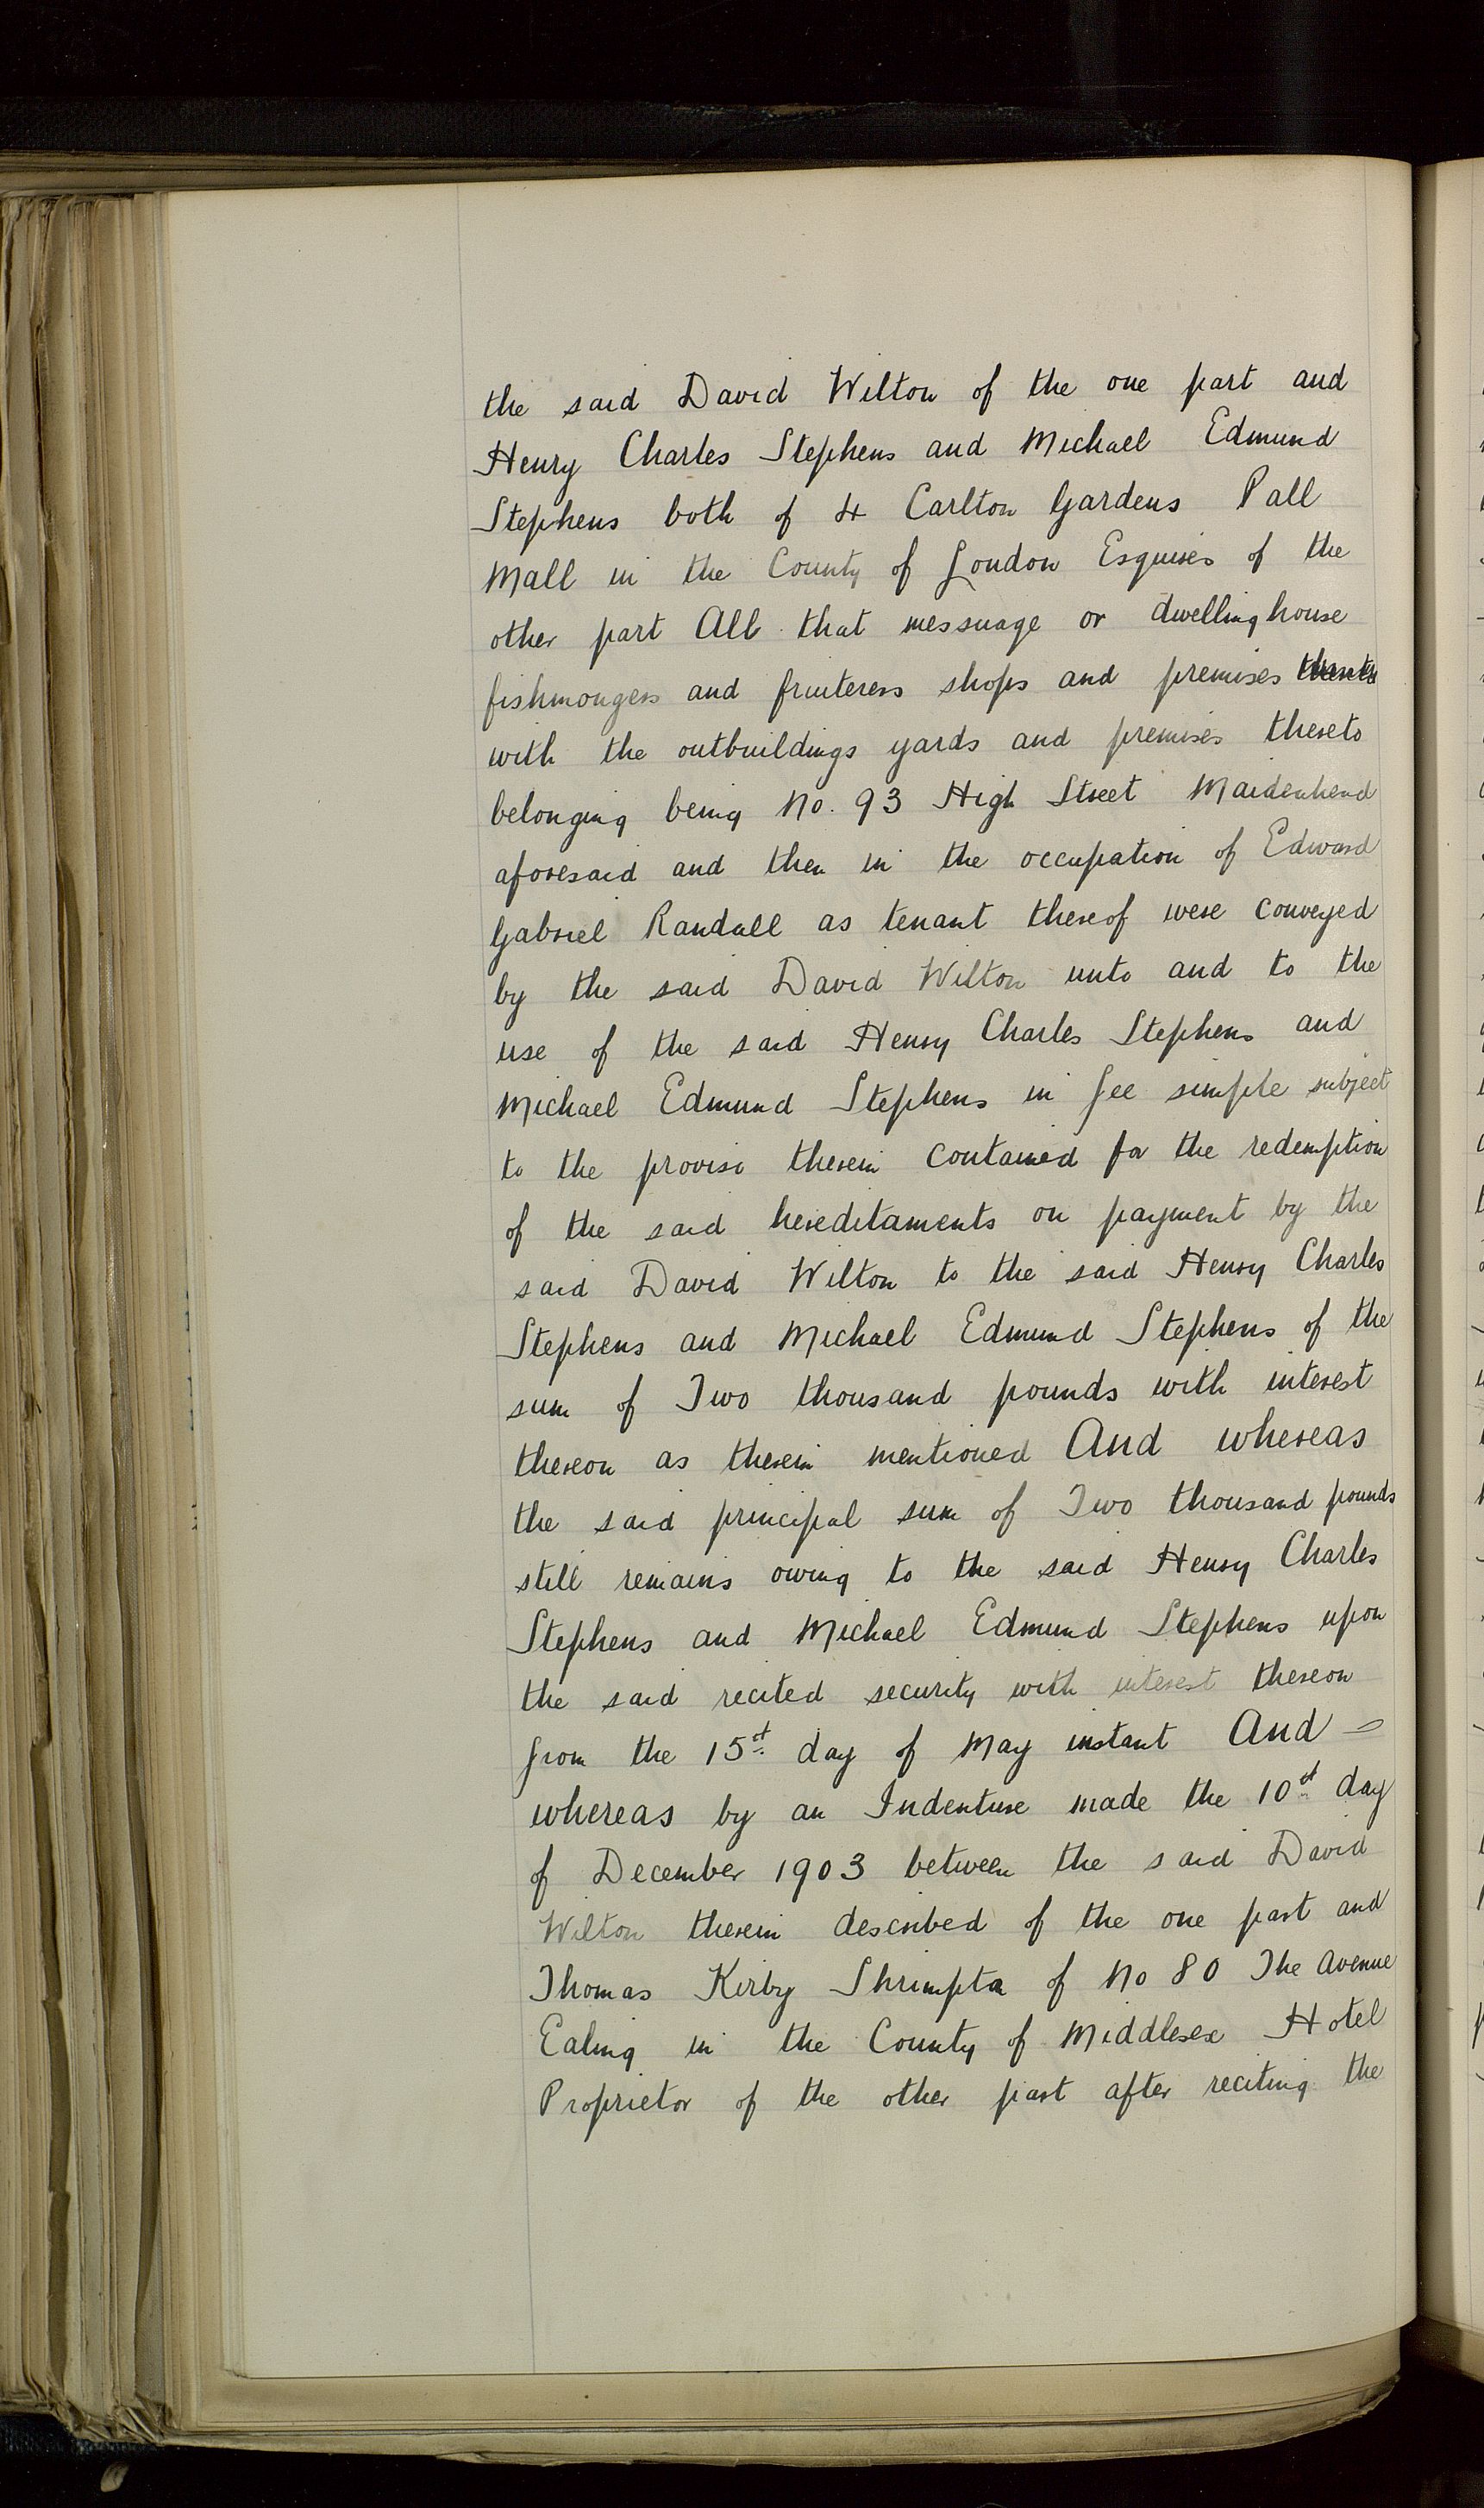 the said David Wilton of the one part and
Henry Charles Stephens and Michael Edmund
Stephens both of 4 Carlton Gardens Pall
Mall in the County of London Esquires of the
other part All that messuage or dwellinghouse
fishmongers and fruiterers shops and premises
with the outbuildings yards and premises thereto
belonging being No. 93 High Street Maidenhead
aforesaid and then in the occupation of Edward
Gabriel Randall as tenant thereof were conveyed
by the said David Wilton unto and to the
use of the said Henry Charles Stephens and
Michael Edmund Stephens in fee simple subject
to the proviso therein contained for the redemption
of the said hereditaments on payment by the
said David Wilton to the said Henry Charles
Stephens and Michael Edmund Stephens of the
sum of Two thousand pounds with interest
thereon as therein mentioned And whereas
the said principal sum of Two thousand pounds
still remains owing to the said Henry Charles
Stephens and Michael Edmund Stephens upon
the said recited security with interest thereon
from the 15th day of May instant And
whereas by an Indenture made the 10th day
of December 1903 between the said David
Wilton therein described of the one part and
Thomas Kirby Shrimpton of No 80 The Avenue
Ealing in the County of Middlesex Hotel
Proprietor of the other part after reciting the